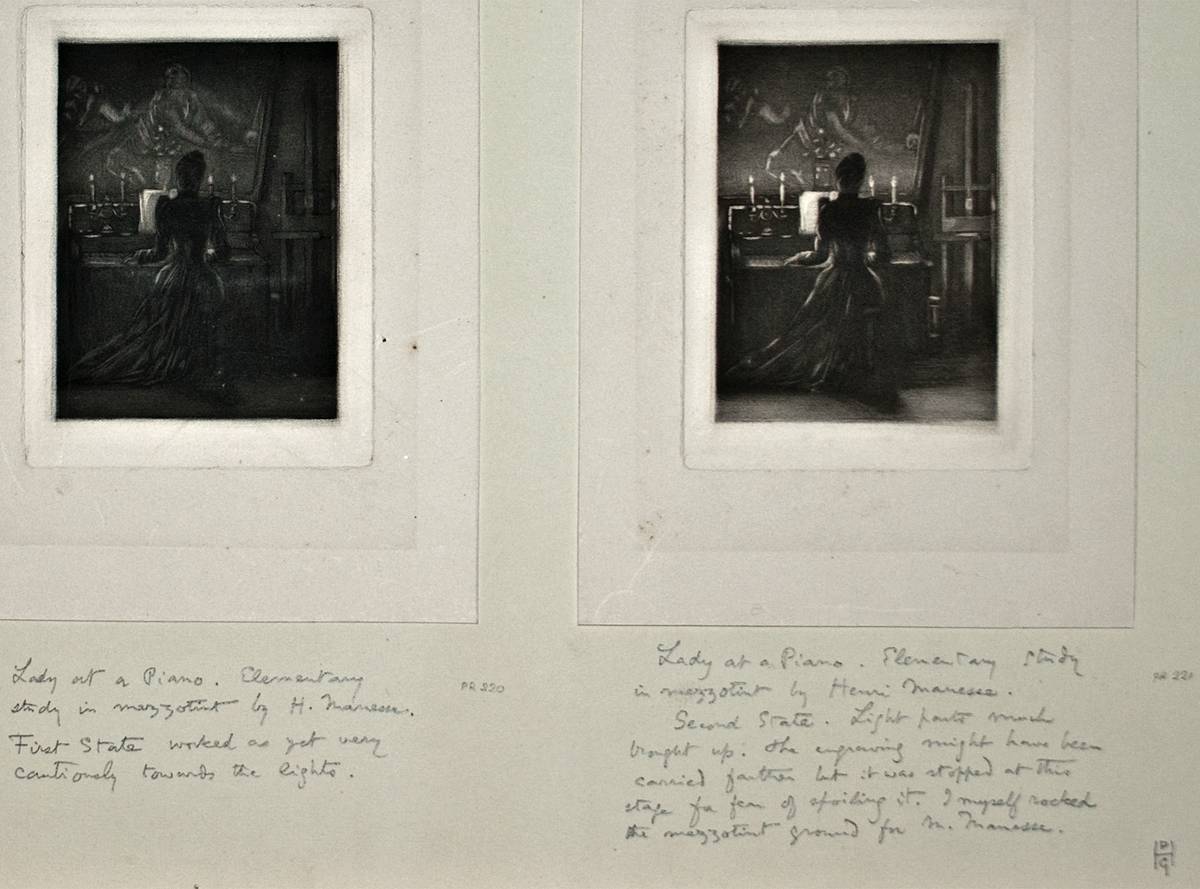 Lady at a Piano. Elementary
study in mezzotint by H. Manesse.
First State worked as yet very
cautiously towards the lights.
PR 220
Lady at a Piano. Elementary Study
in mezzotint by Henri Manesse.
Second State. Light parts much
brought up. The engraving might have been
carried farther but it was stopped at this
stage for fear of spoiling it. I myself rocked
the mezzotint ground for M. Manesse.
PR 221
PHG